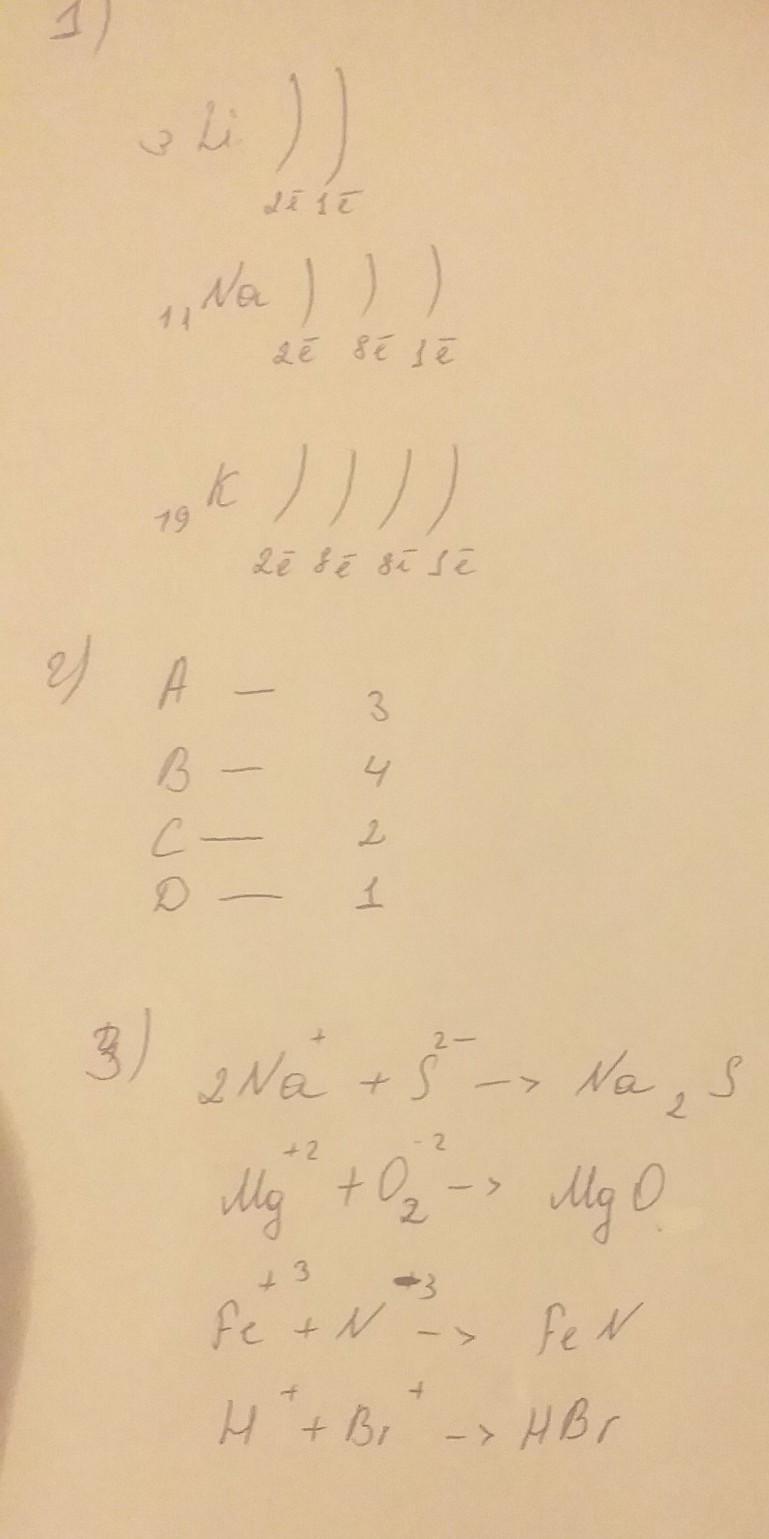 1)
₃Li ) )
2ē 1ē
₁₁Na ) ) )
2ē 8ē 1ē
₁₉K ) ) ) )
2ē 8ē 8ē 1ē
2) A — 3
B — 4
C — 2
D — 1
3) 2Na⁺ + S²⁻ -> Na₂S
Mg⁺² + O₂⁻² -> MgO
Fe⁺³ + N⁻³ -> FeN
H⁺ + Br⁺ -> HBr